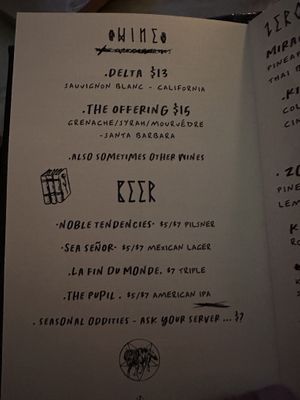 WINE
.DELTA $13
SAUVIGNON BLANC - CALIFORNIA
.THE OFFERING $15
GRENACHE/SYRAH/MOURVÈDRE
-SANTA BARBARA
.ALSO SOMETIMES OTHER WINES
BEER
·NOBLE TENDENCIES· $5/$7 PILSNER
·SEA SEÑOR· $5/$7 MEXICAN LAGER
.LA FIN DU MONDE. $7 TRIPLE
.THE PUPIL . $5/$7 AMERICAN IPA
. SEASONAL ODDITIES - ASK YOUR SERVER ... $?
ZERO
MIRA
PINEA
THAI B
.KI
CO
CI
.ZO
PINE
LEM
K
RO